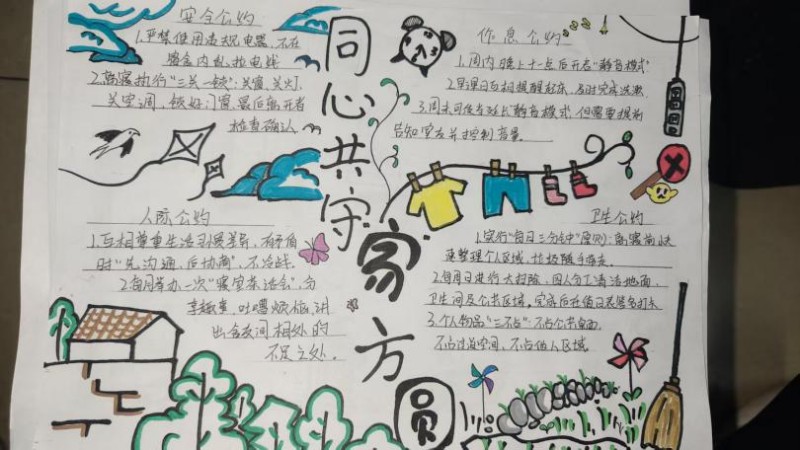 安全公约
1.严禁使用违规电器,不在
宿舍内乱拉电线
2.离寝执行"三关一锁":关窗、关灯、
关空调,锁好门窗,最后离开者
检查确认
同心共守
家方圆
作息公约
1.周内晚上十一点后开启"静音模式"
2.早课日互相提醒起床,及时完成洗漱
3.周末可适当延长"静音模式",但需要提前
告知室友并控制音量。
人际公约
1.互相尊重生活习惯差异,有矛盾
时"先沟通,后协商",不冷战。
2.每月举办一次"寝室茶话会",分
享趣事,吐槽烦恼,讲
出舍友间相处的
不足之处。
卫生公约
1.实行"每日三分钟"原则:离寝前快
速整理个人区域,垃圾随手带走。
2.每周日进行大扫除,四人分工清洁地面,
卫生间及公共区域,完成后在值日表签名打卡
3.个人物品"三不占":不占公共桌面,
不占过道空间,不占他人区域